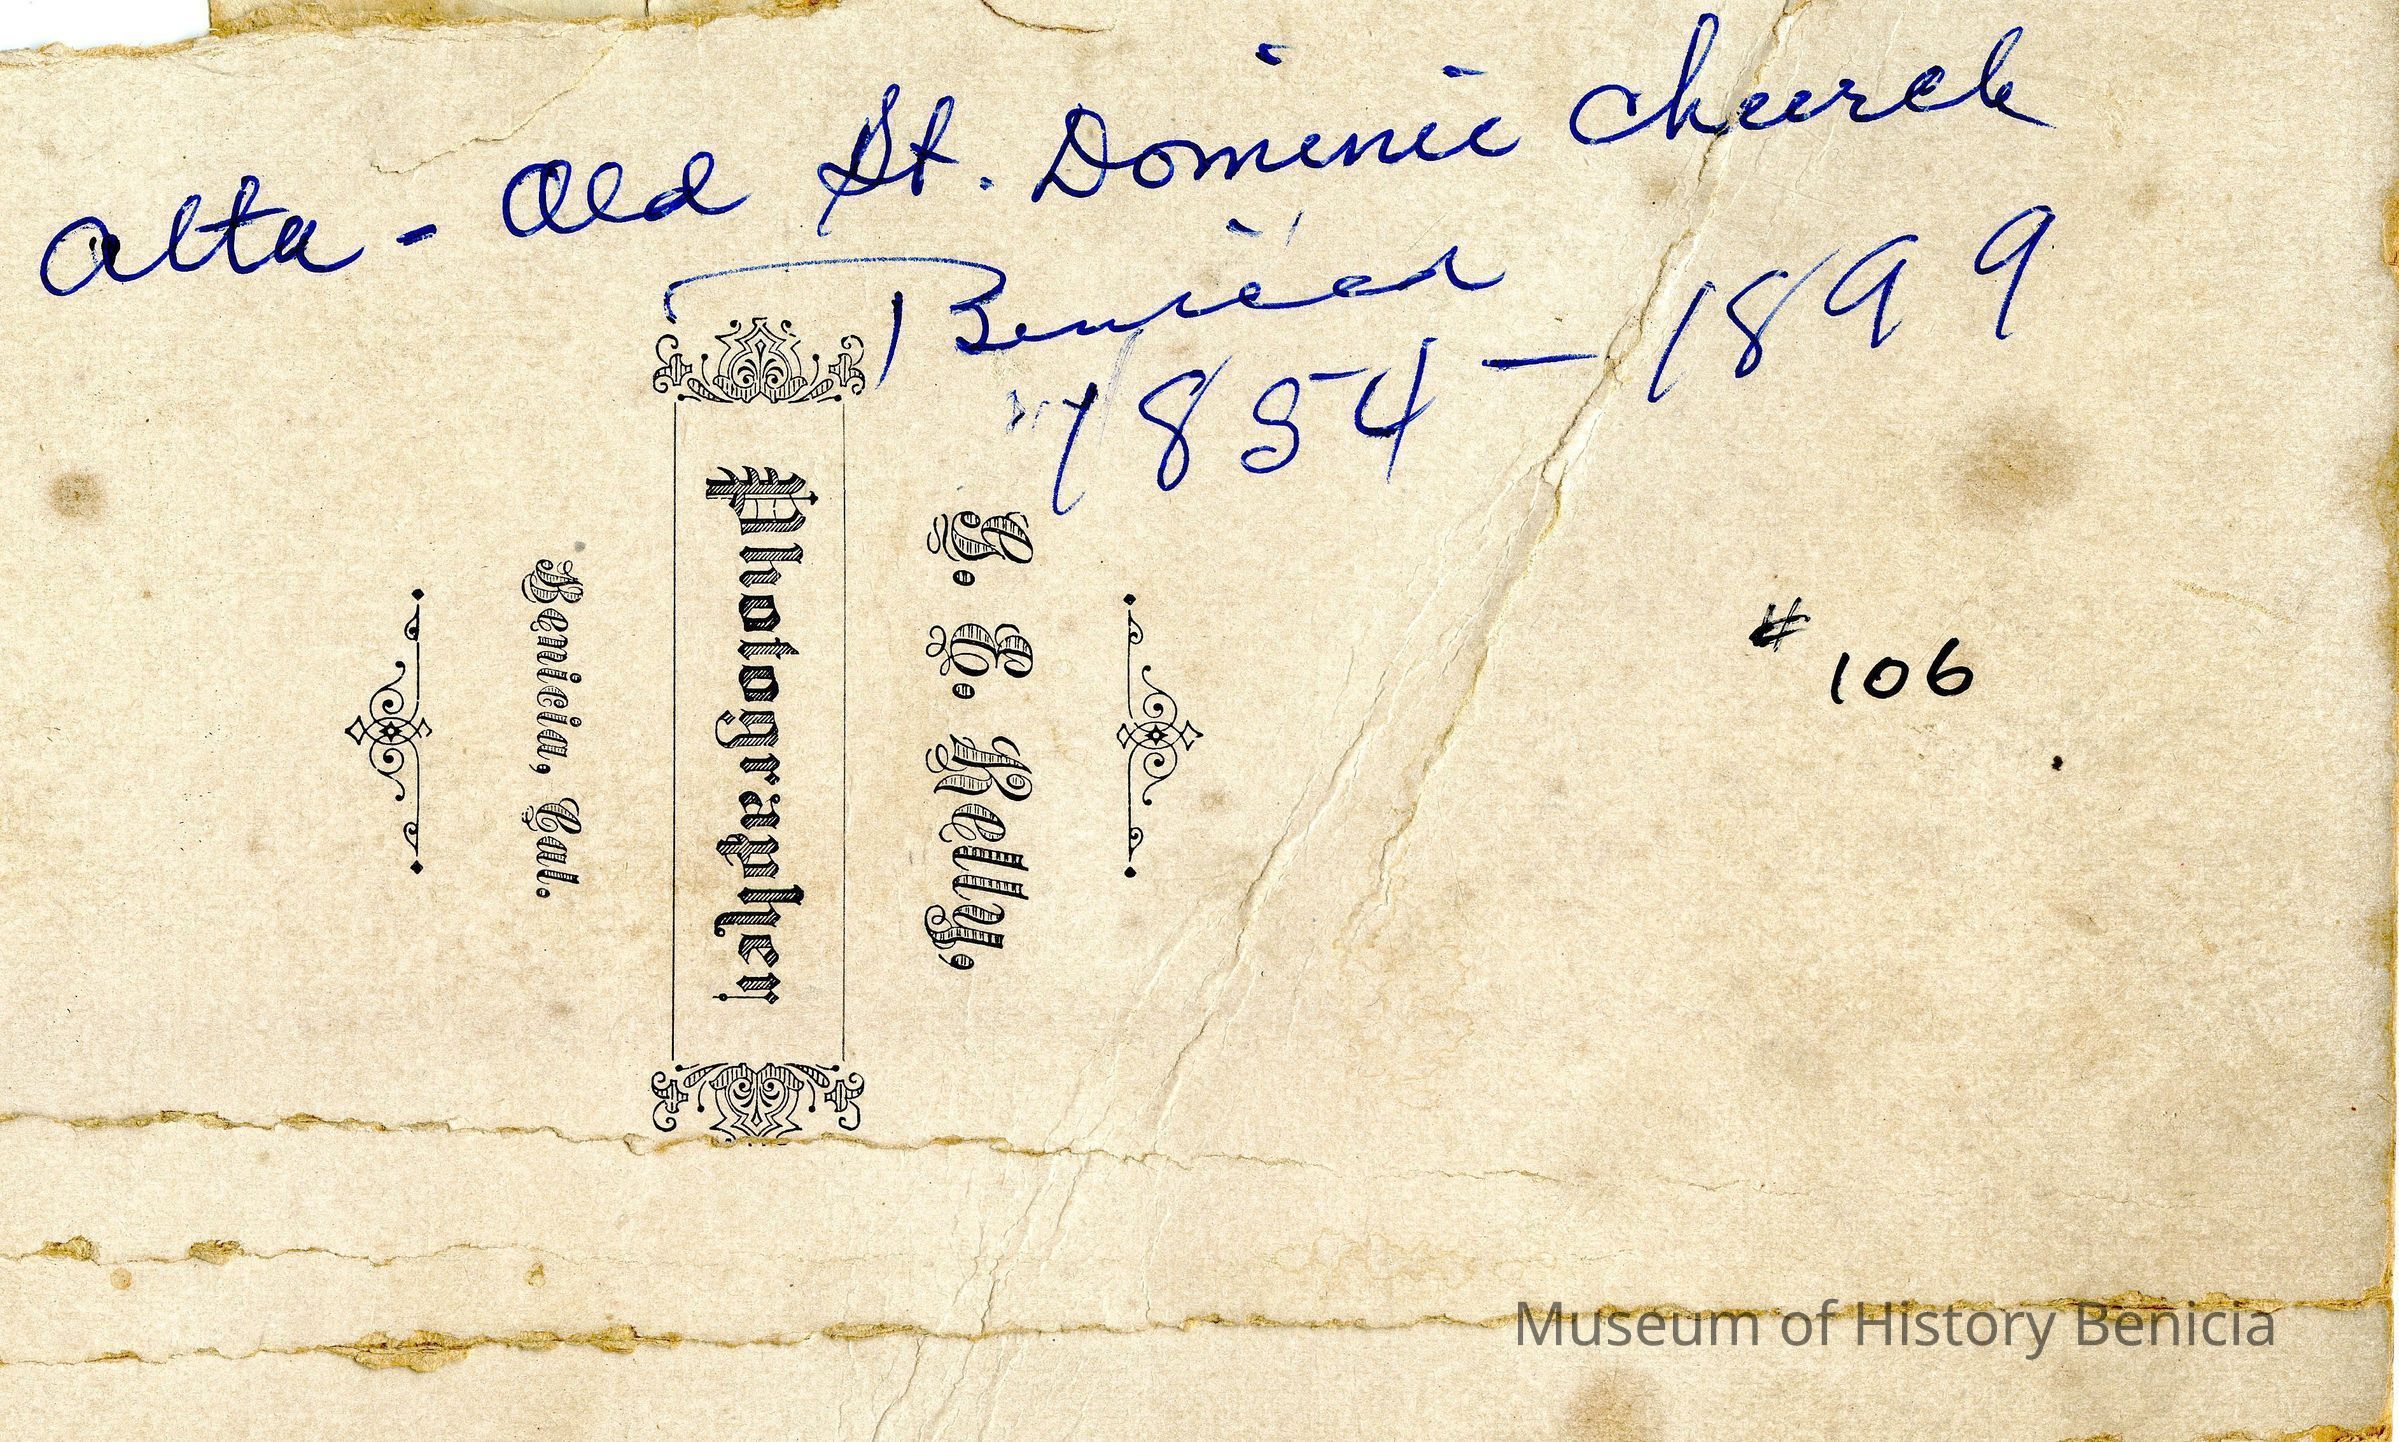 Alta - Old St. Dominic Church
Benicia
1854 - 1899
# 106
G. E. Kelly,
Photographer
Benicia, Cal.
Museum of History Benicia